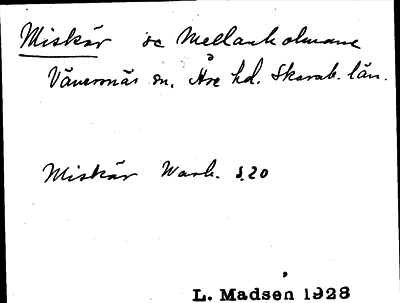 Miskär se Mellanholmarne
Vänersnäs sn. Åse hd. Skarab. län.
Miskär Wank. s. 20
L. Madsen 1928